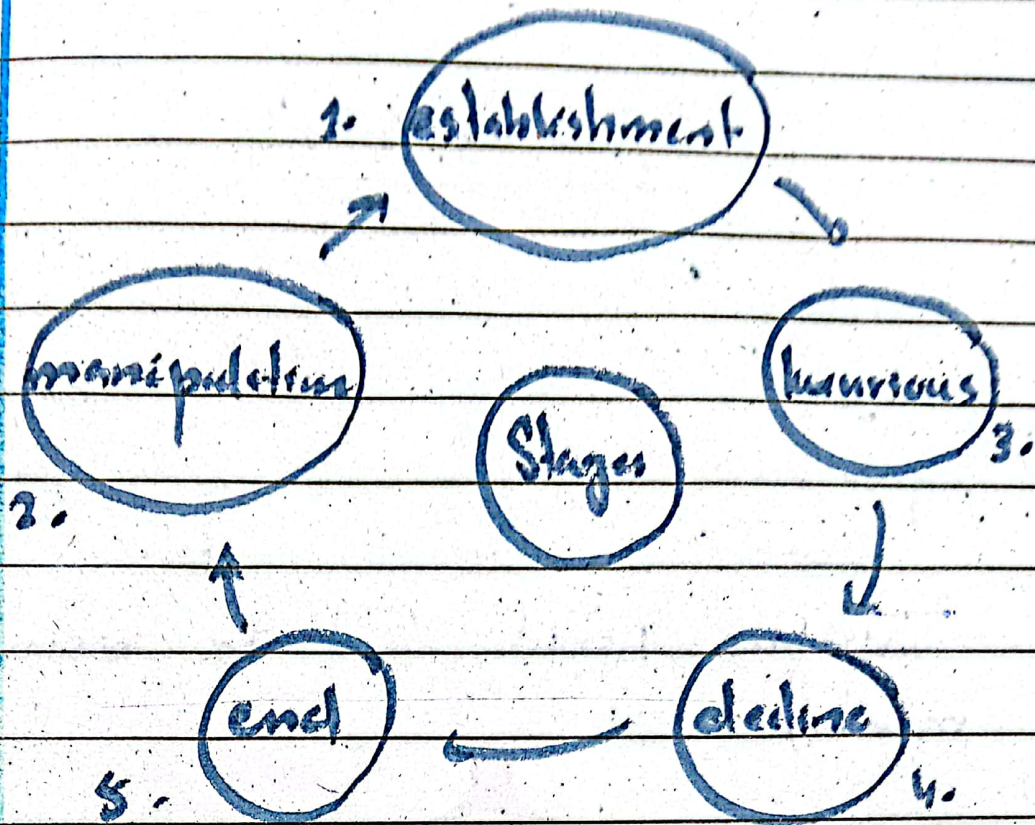 1. establishment
manipulation
2.
luxurious
3.
Stages
end
5.
decline
4.